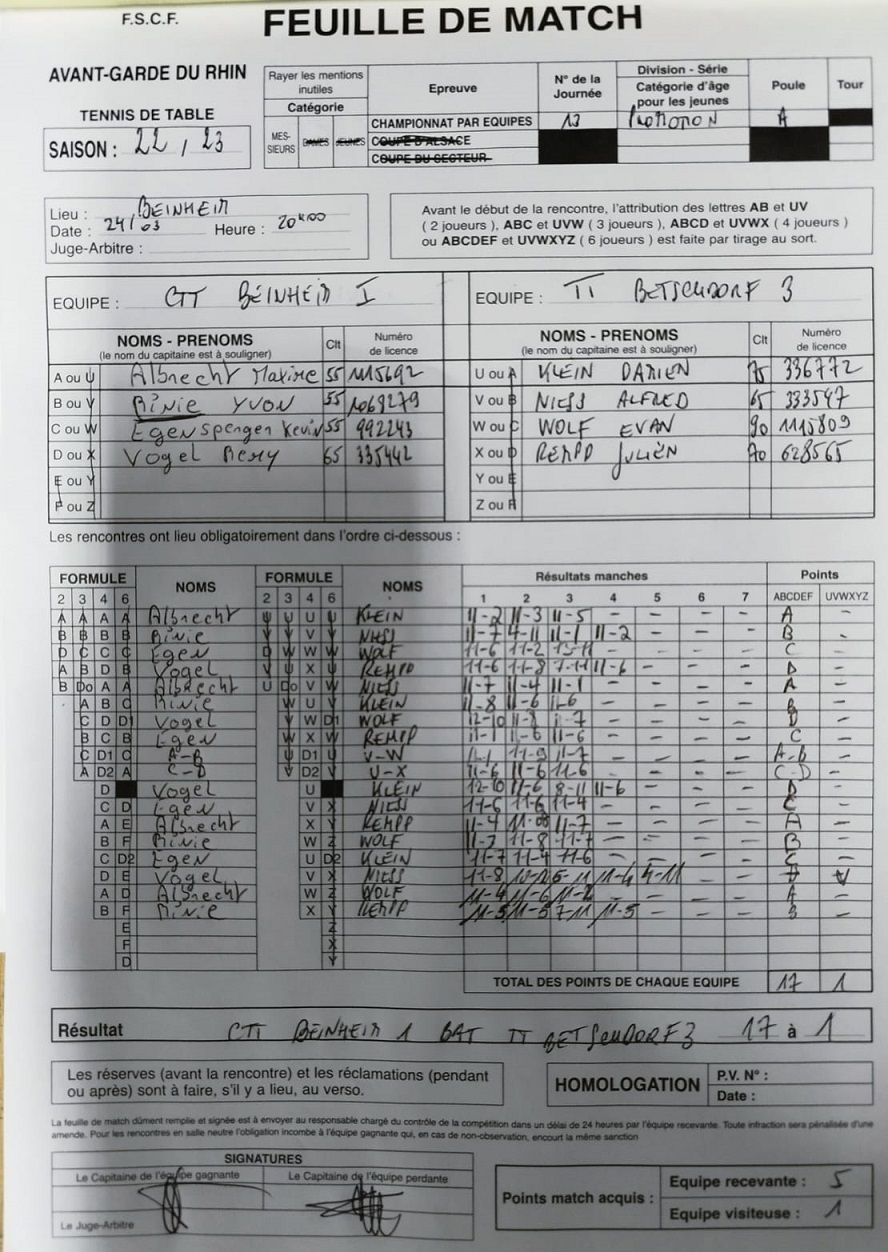 F.S.C.F.
FEUILLE DE MATCH
AVANT-GARDE DU RHIN
TENNIS DE TABLE
SAISON : 22 / 23
Rayer les mentions inutiles
Catégorie
MES-SIEURS DAMES JEUNES
Epreuve
N° de la Journée
Division - Série
Catégorie d'âge pour les jeunes
Poule
Tour
CHAMPIONNAT PAR EQUIPES 13 A
COUPE D'ALSACE
COUPE DU SECTEUR
Lieu : BEINHEIM
Date : 24/03 Heure : 20h00
Juge-Arbitre :
Avant le début de la rencontre, l'attribution des lettres AB et UV
( 2 joueurs ), ABC et UVW ( 3 joueurs ), ABCD et UVWX ( 4 joueurs )
ou ABCDEF et UVWXYZ ( 6 joueurs ) est faite par tirage au sort.
EQUIPE : CTT BEINHEIM I
EQUIPE : TT BETSCHDORF 3
NOMS - PRENOMS (le nom du capitaine est à souligner) Clt Numéro de licence
NOMS - PRENOMS (le nom du capitaine est à souligner) Clt Numéro de licence
A ou U Albrecht Maxime 55 1115692 U ou A KLEIN DAMIEN 75 336772
B ou V Binie YVON 55 1069279 V ou B NIESS ALFRED 65 333547
C ou W Egensperger Kevin 55 992243 W ou C WOLF EVAN 90 1115809
D ou X Vogel Remy 65 335442 X ou D REMPP JULIEN 70 628565
E ou Y Y ou E
F ou Z Z ou F
Les rencontres ont lieu obligatoirement dans l'ordre ci-dessous :
FORMULE NOMS FORMULE NOMS Résultats manches Points
2 3 4 6 2 3 4 6 1 2 3 4 5 6 7 ABCDEF UVWXYZ
A A A A Albrecht U U U U KLEIN 11-2 11-3 11-5 - - - - A -
B B B B Binie V V V V NIESS 11-7 4-11 11-1 11-2 - - - B -
D C C C Egen W W W WOLF 11-6 11-2 - - - - C -
A B D B Vogel V U X U REMPP 11-6 11-8 7-11 11-6 - - - D -
B Do A A Albrecht U Do V W NIESS 11-7 11-4 11-1 - - - - A -
A B C Binie W U V KLEIN 11-8 11-6 11-6 - - - - B -
C D D1 Vogel V W D1 WOLF 12-10 11-8 - - - - D -
B C B Egen W X W REMPP 11-1 11-6 11-6 - - - - C -
C D1 C A-B V D1 U V-W 11-9 11-7 - - - - A-B -
A D2 A C-D V D2 V U-X 11-6 11-6 11-6 - - - - C-D -
D Vogel U KLEIN 12-10 11-6 8-11 11-6 - - - D -
C D Egen V X NIESS 11-6 11-6 11-4 - - - - C -
A E Albrecht X Y REMPP 11-4 11-7 - - - - A -
B F Binie W Z WOLF 11-8 11-7 - - - - B -
C D2 Egen U D2 KLEIN 11-7 11-4 11-6 - - - - C -
D E Vogel V X NIESS 11-8 5-11 11-4 4-11 - - V
A D Albrecht W Z WOLF 11-4 11-6 11-2 - - - - A -
B F Binie X Y REMPP 11-5 11-5 7-11 11-5 - - - B -
E Z
F X
D Y
TOTAL DES POINTS DE CHAQUE EQUIPE 17 1
Résultat CTT BEINHEIM 1 BAT TT BETSCHDORF 3 17 à 1
Les réserves (avant la rencontre) et les réclamations (pendant
ou après) sont à faire, s'il y a lieu, au verso.
HOMOLOGATION
P.V. N° :
Date :
La feuille de match dûment remplie et signée est à envoyer au responsable chargé du contrôle de la compétition dans un délai de 24 heures par l'équipe recevante. Toute infraction sera pénalisée d'une
amende. Pour les rencontres en salle neutre l'obligation incombe à l'équipe gagnante qui, en cas de non-observation, encourt la même sanction
SIGNATURES
Le Capitaine de l'équipe gagnante Le Capitaine de l'équipe perdante
Le Juge-Arbitre
Points match acquis :
Equipe recevante : 5
Equipe visiteuse : 1